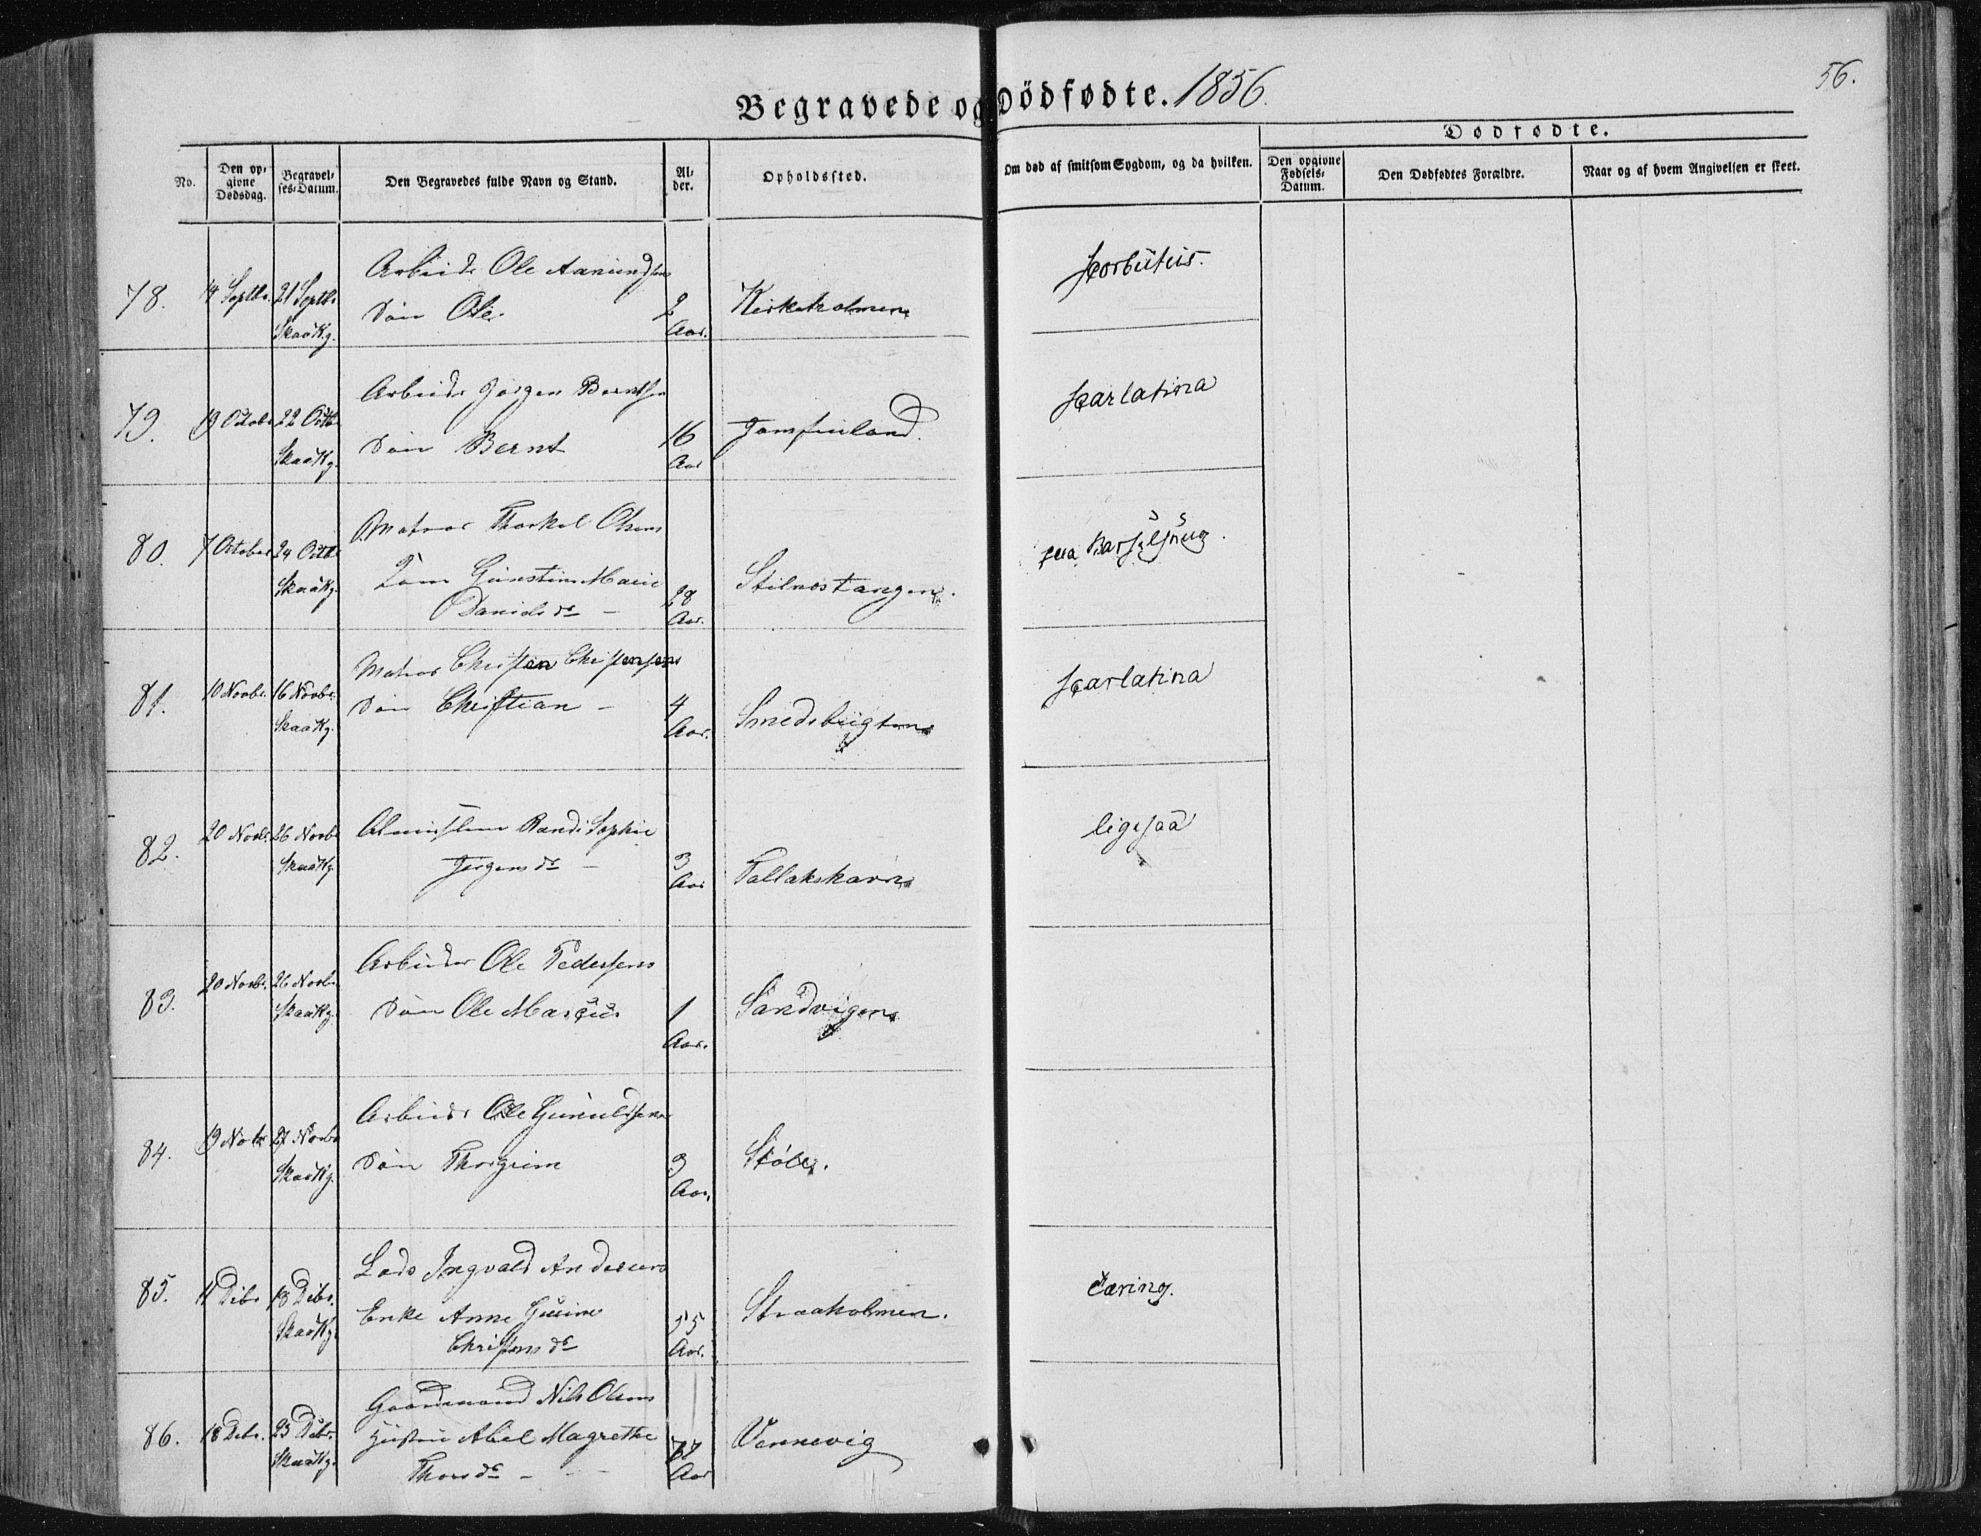 Begravede og Dödfødte. 1856.
56.
Dødfødte.
No.
Den op-
givne
Dødsdag.
Begravel-
ses-Datum.
Den Begravedes fulde Navn og Stand.
Al-
der.
Opholdssted.
Om død af smitsom Sygdom, og da hvilken.
Den opgivne
Fødsels-
Datum.
Den Dødfødtes Forældre.
Naar og af hvem Angivelsen er skeet.
78.
14 Septbr.
21 Septbr
SkaaKg.
Arbeider Ole Aanundsens
Søn Ole
2
Aar.
Kirkeholmen
scorbutus.
79.
19 Octobr
22 Octbr
SkaaKg.
Arbeider Jörgen Berntsens
Søn Bernt
16
Aar
Jomfruland.
scarlatina
80.
7 October
24 Octbr
SkaaKg.
Matros Thorkel Olsens
Gunstine Marie
Daniels dr –
28
Aar.
Stilnestangen.
Barselseng.
81.
10 Novbr.
16 Novbr.
SkaaKg.
Matros Christen Christensens
Søn Christian –
4
Aar.
Smedsbugten
scarlatina
82.
20 Novbr.
26 Novbr
SkaaKg
Almislem Randi Sophie
Jörgens dr –
3
Aar
Tallakshavn
ligesaa
83.
20 Novbr.
26 Novbr.
SkaaKg.
Arbeider Ole Pedersens
Søn Ole Marcus
1
Aar.
Sandvigen
84.
19 Nobr
27 Novbr
SkaaKg.
Arbeider Ole Gunuldsens
Søn Thorgrim
3
Aar.
Støle.
85.
11 Debr
18 Debr.
SkaaKg.
Lods Ingvald Andersens
Enke Anne
Christens dr
55
Aar.
Straaholmen.
Tæring.
86.
18 Debr.
23 Debr.
SkaaKg.
Gaardmand Nils Olsens
Hustru Abel Magrethe
Thors dr – –
67
Aar
Vennevig